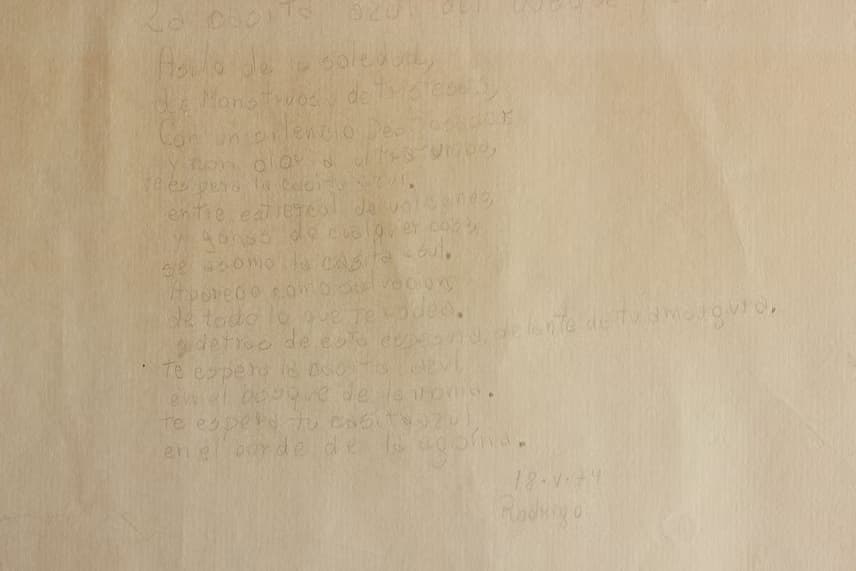 La casita azul del bosque
Asilo de la soledad,
de Monstruos y de tristesas,
Con un silencio
y con olor a ultratumba,
te espera la casita azul.
entre estiercol de volcanes,
y ganas de cualquier cosa,
se asoma la casita asul.
Aparece como salvacion
de todo lo que te rodea.
y detras de esta delante de tu amargura.
te espera la casita azul
en el bosque de la ironia.
te espera tu casita azul
en el borde de la agonia.
18.V.74
Rodrigo